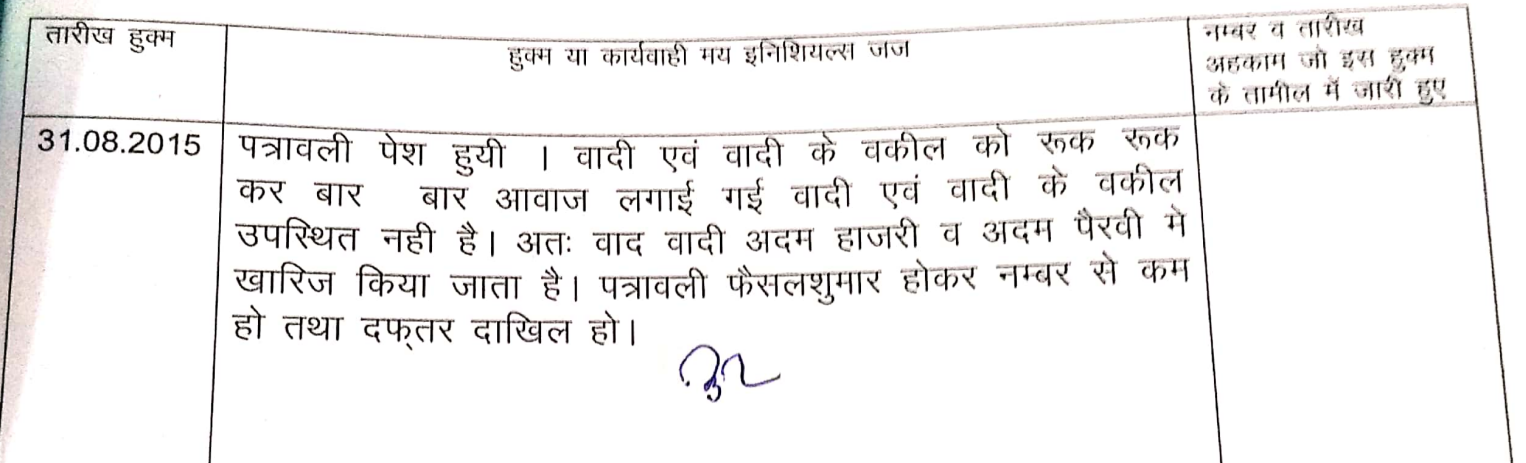 तारीख हुक्म
हुक्म या कार्यवाही मय इनिशियल्स जज
नम्बर व तारीख
अहकाम जो इस हुक्म
के तामील में जारी हुए
31.08.2015
पत्रावली पेश हुयी । वादी एवं वादी के वकील को रूक रूक
कर बार बार आवाज लगाई गई वादी एवं वादी के वकील
उपस्थित नही है। अतः वाद वादी अदम हाजरी व अदम पैरवी मे
खारिज किया जाता है। पत्रावली फैसलशुमार होकर नम्बर से कम
हो तथा दफ्तर दाखिल हो।